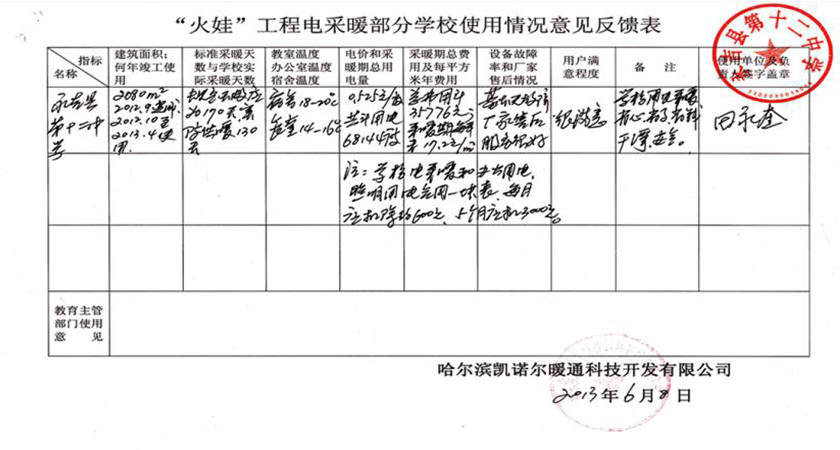 “火娃”工程电采暖部分学校使用情况意见反馈表
指标
名称
建筑面积;
何年竣工使
用
标准采暖天
数与学校实
际采暖天数
教室温度
办公室温度
宿舍温度
电价和采
暖期总用
电量
采暖期总费
用及每平方
米年费用
设备故障
率和厂家
售后情况
用户满
意程度
备 注
使用单位及负
责人签字盖章
县第十二中学
第十二中
2080m²
2012.9
2012.10至
2013.4使
用.
170天
130
天
宿舍18-20℃
14-16℃
0.525元/
共计用电
68144度
37776元
17.2元/m
厂家售后
服务很好
很满意
学校用电采暖
省心、省力、省钱
干净、安全。
田永奎
注:学校电采暖和办公用电、
照明用电合用一块表,每月
应扣除约600元,5个月应扣3000元。
教育主管
部门使用
意 见
哈尔滨凯诺尔暖通科技开发有限公司
2013年6月8日